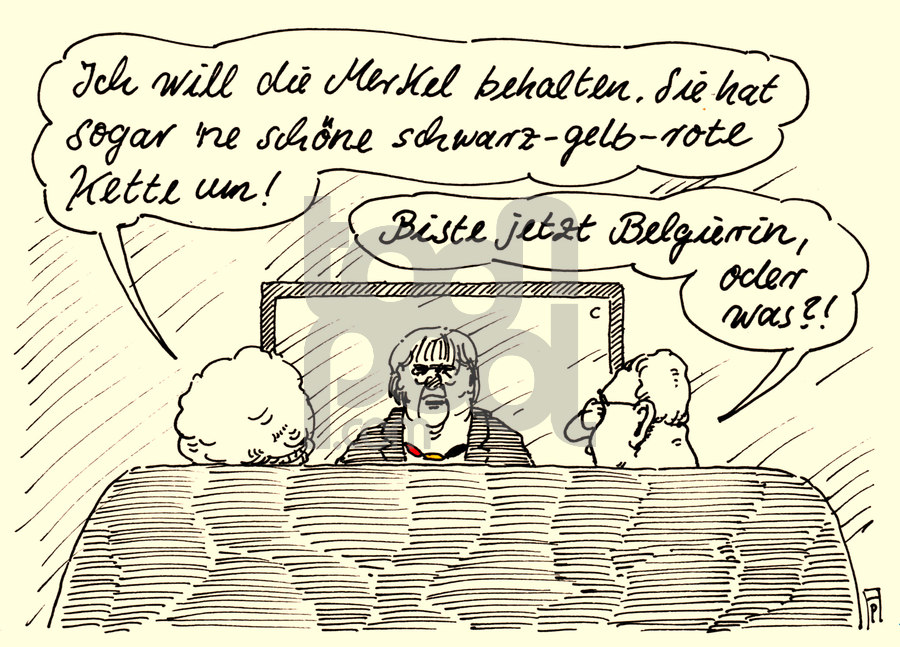 Ich will die Merkel behalten. Sie hat
sogar 'ne schöne schwarz-gelb-rote
Kette um!
Biste jetzt Belgierin,
oder
was?!
C
toon
pool
.com
P